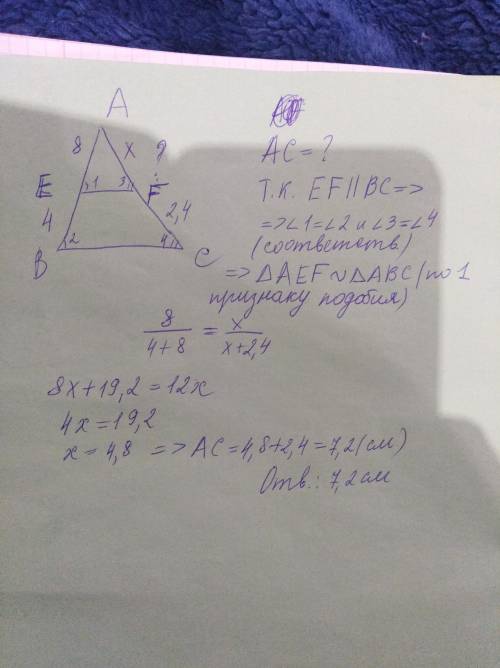 A
8
x
?
E
1
3
F
4
2,4
2
4
B
C
AC = ?
Т.к. EF || BC =>
=> ∠1 = ∠2 и ∠3 = ∠4
(соответств)
=> ΔAEF ~ ΔABC (по 1
признаку подобия)
8/(4+8) = x/(x+2,4)
8x + 19,2 = 12x
4x = 19,2
x = 4,8 => AC = 4,8 + 2,4 = 7,2 (см)
Отв.: 7,2 см